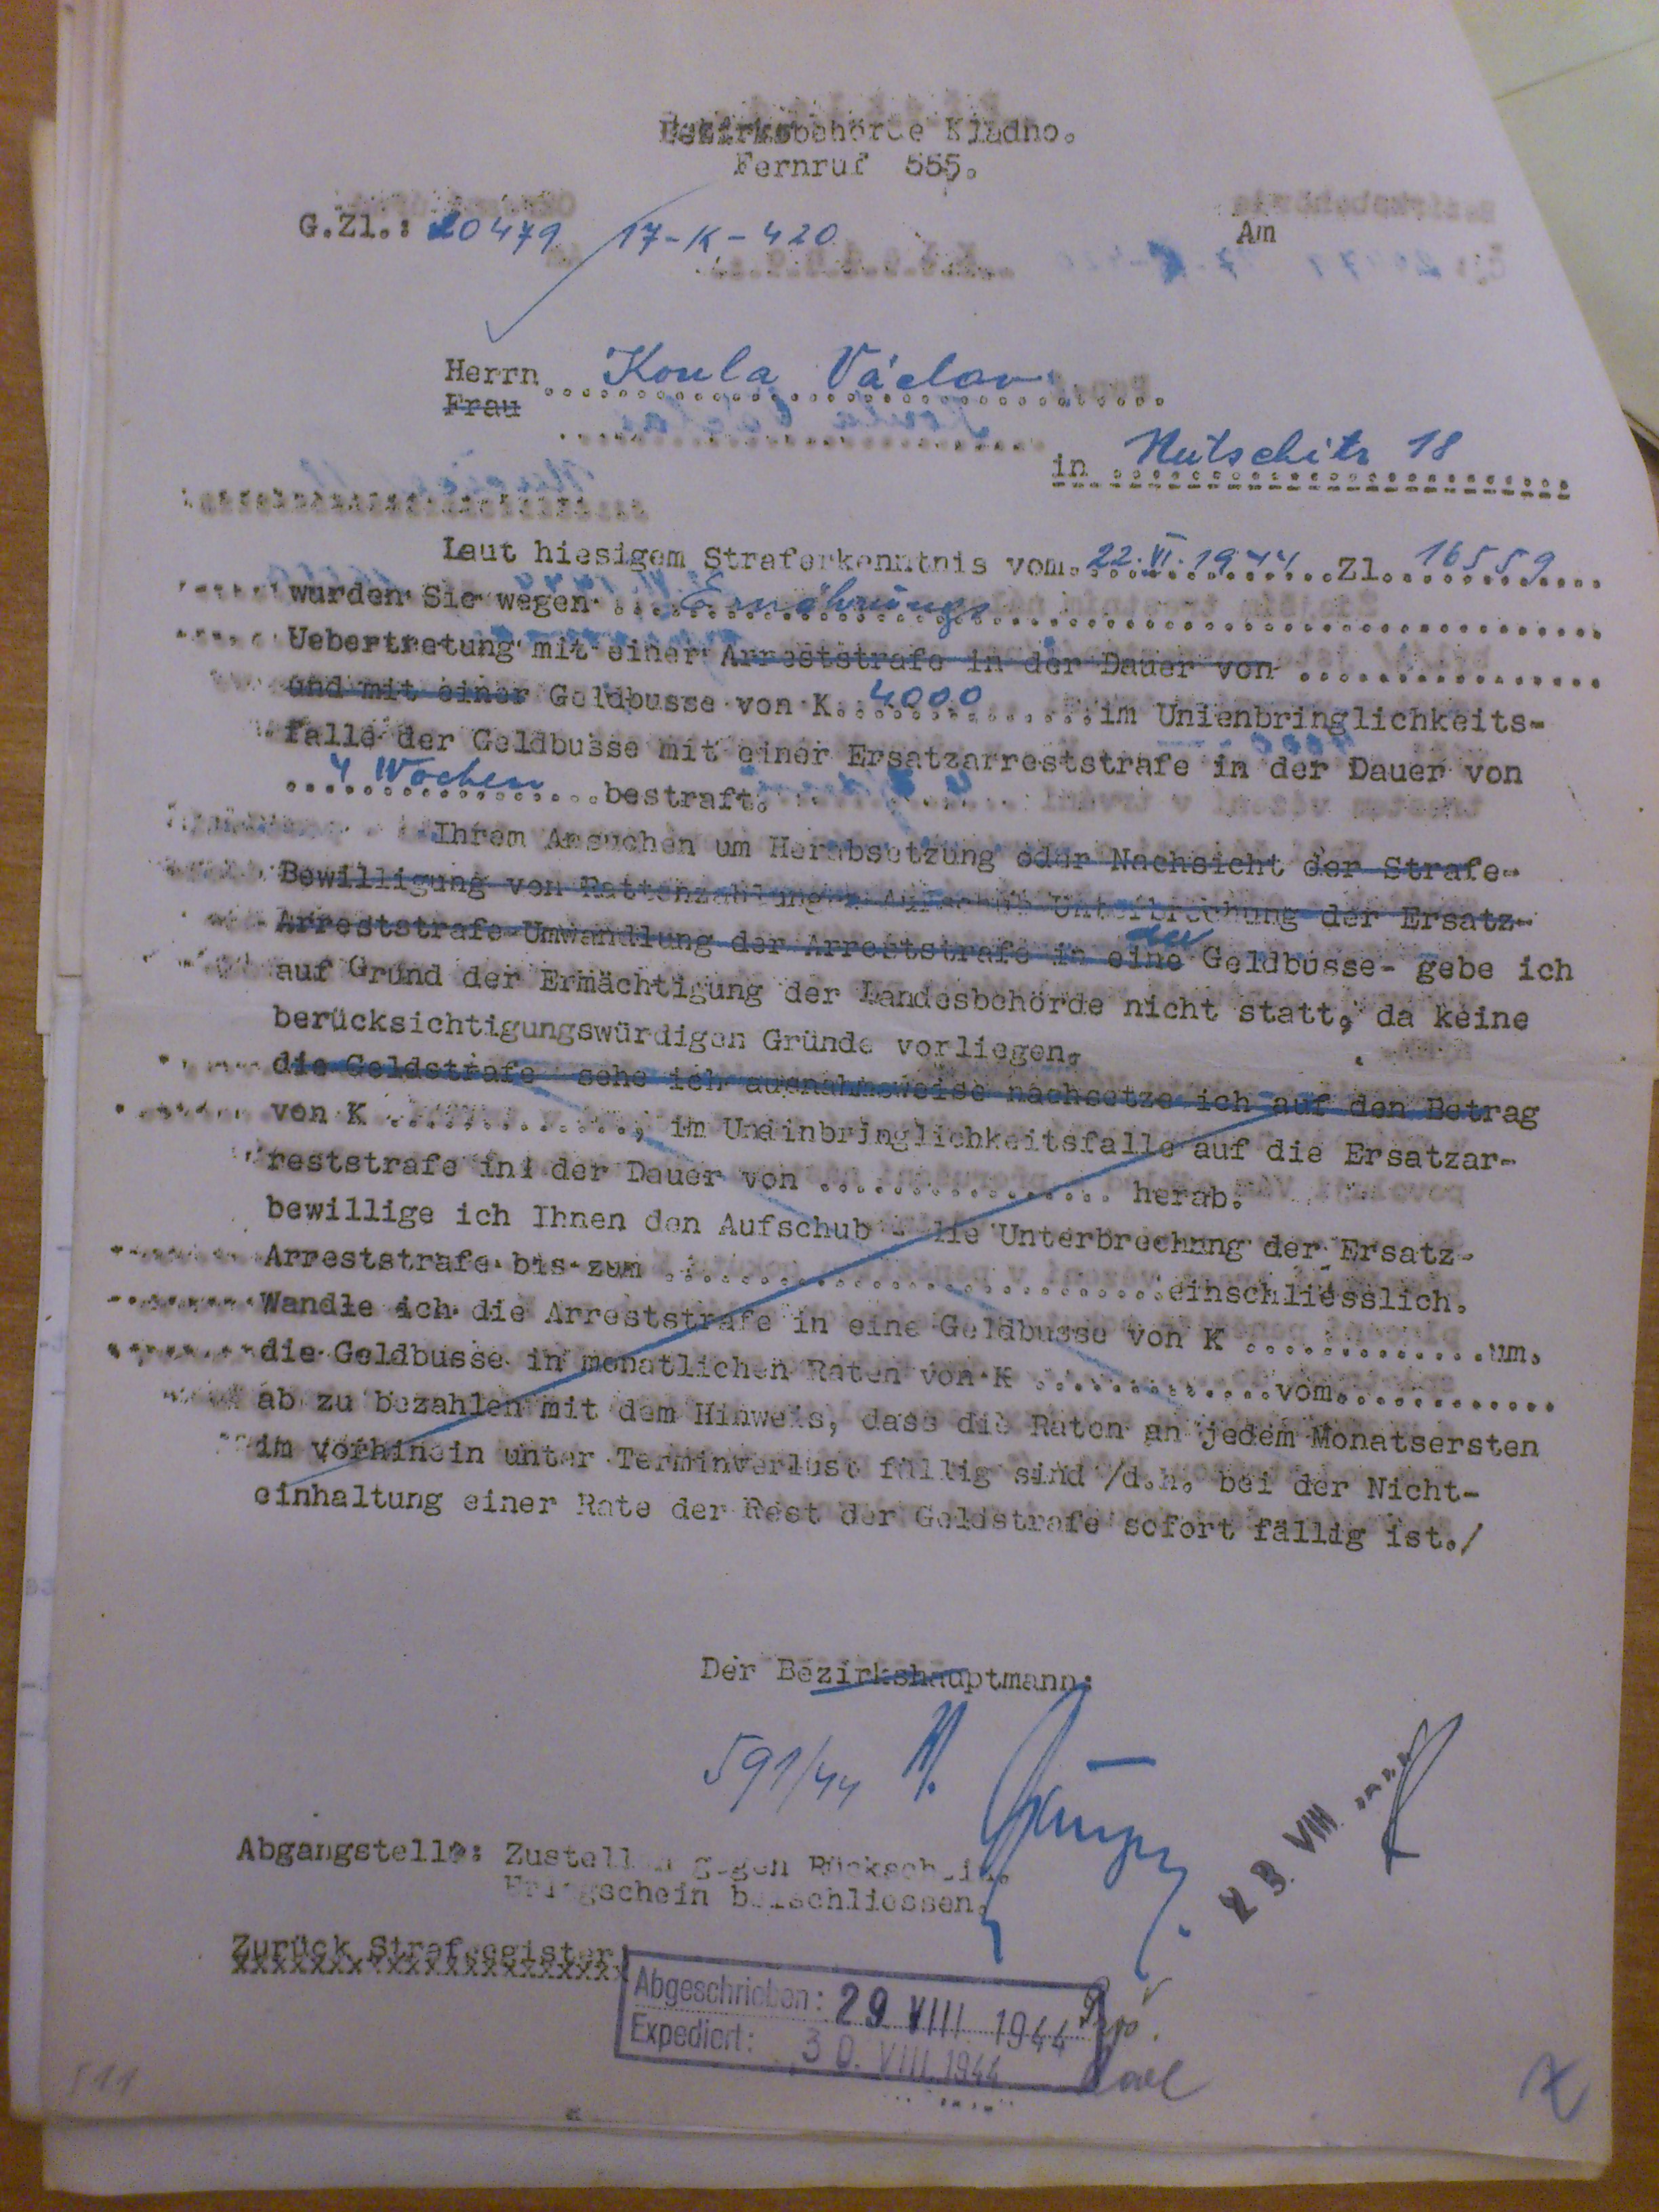 Bezirksbehörde Kladno.
Fernruf 555.
G.Zl.: 20479 17-K-420
Am
Herrn Koula Václav
Frau
in Nutschitz 18
Laut hiesigem Straferkenntnis vom 22.VI.1944 Zl. 16559
wurden Sie wegen Ernährungs
Uebertretung mit einer Arreststrafe in der Dauer von
und mit einer Geldbusse von K 4000 im Unienbringlichkeits-
falle der Geldbusse mit einer Ersatzarreststrafe in der Dauer von
4 Wochen bestraft.
Ihrem Ansuchen um Herabsetzung oder Nachsicht der Strafe-
Bewilligung von Rattenzahlungen Aufschub Unterbrechung der Ersatz-
Arreststrafe-Umwandlung der Arreststrafe in eine der Geldbusse- gebe ich
auf Grund der Ermächtigung der Landesbehörde nicht statt, da keine
berücksichtigungswürdigen Gründe vorliegen.
die Geldstrafe sehe ich ausnahmsweise nachsetze ich auf den Betrag
von K ............., im Uneinbringlichkeitsfalle auf die Ersatzar-
reststrafe in der Dauer von ................ herab.
bewillige ich Ihnen den Aufschub - die Unterbrechnng der Ersatz-
Arreststrafe bis zum ........................... einschliesslich.
Wandle ich die Arreststrafe in eine Geldbusse von K ............. um.
die Geldbusse in monatlichen Raten von K ............. vom............
ab zu bezahlen mit dem Hinweis, dass die Raten an jedem Monatsersten
im vorhinein unter Terminverlust fällig sind /d.h. bei der Nicht-
einhaltung einer Rate der Rest der Geldstrafe sofort fällig ist./
Der Bezirkshauptmann:
591/44
Abgangstelle: Zustellen gegen Rückschein.
Erlagschein beischliessen.
23. VIII
Zurück Strafregister
Abgeschrieben: 29 VIII 1944
Expediert: 30. VIII. 1944
511